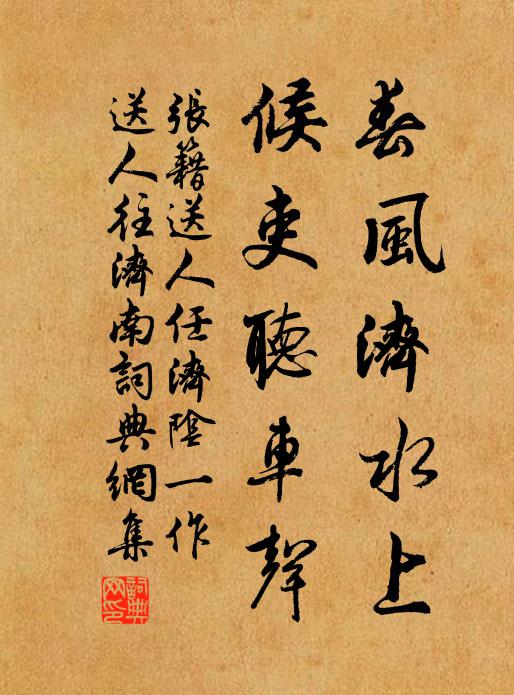 春風濟水上
候吏聽車聲
張籍送人任濟陰一作
送人往濟南詞典網集
詞典網印